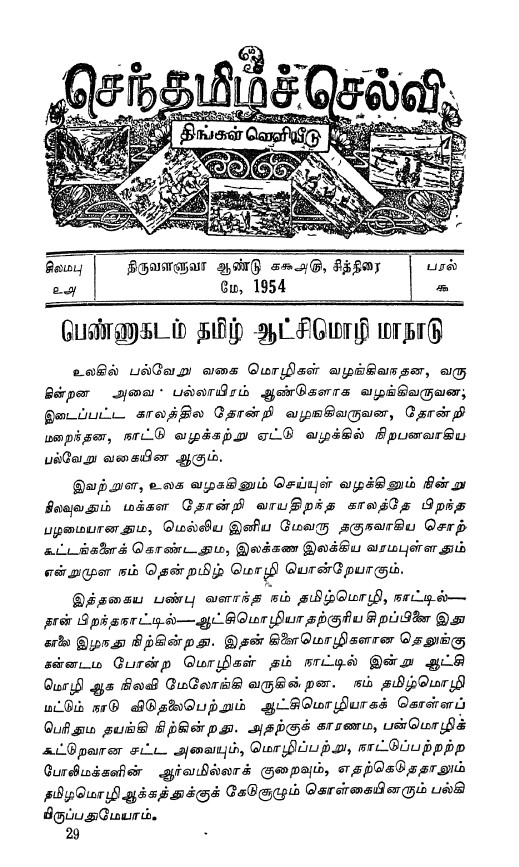 செந்தமிழ்ச் செல்வி
திங்கள் வெளியீடு
சிலமபு
உஅ
திருவளளுவா ஆண்டு ககூஅரு, சித்திரை
மே, 1954
பரல்
கூ
பெண்ணுகடம் தமிழ் ஆட்சிமொழி மாநாடு
உலகில் பல்வேறு வகை மொழிகள் வழங்கிவநதன, வரு
கின்றன அவை பல்லாயிரம் ஆண்டுகளாக வழங்கிவருவன;
இடைப்பட்ட காலத்தில தோன்றி வழஙகிவருவன, தோன்றி
மறைந்தன, நாட்டு வழக்கற்று ஏட்டு வழக்கில் நிறபனவாகிய
பல்வேறு வகையின ஆகும்.
இவற்றுள, உலக வழககினும் செய்யுள் வழக்கினும் நின்று
நிலவுவதும் மக்கள தோன்றி வாயதிறந்த காலத்தே பிறந்த
பழமையானதும, மெல்லிய இனிய மேவரு தகுநவாகிய சொற்
கூட்டங்களைக் கொண்டதும, இலக்கண இலக்கிய வரமபுள்ளதும்
என்றுமுள நம் தென்றமிழ் மொழி யொன்றேயாகும்.
இத்தகைய பண்பு வளாந்த நம் தமிழ்மொழி, நாட்டில்—
தான் பிறந்தநாட்டில்—ஆட்சிமொழியாதற்குரிய சிறப்பினை இது
காலை இழநது நிற்கின்றது. இதன் கிளைமொழிகளான தெலுங்கு
கன்னடம போன்ற மொழிகள் தம் நாட்டில் இன்று ஆட்சி
மொழி ஆக நிலவி மேலோங்கி வருகின்றன. நம் தமிழ்மொழி
மட்டும் நாடு விடுதலைபெற்றும் ஆட்சிமொழியாகக் கொள்ளப்
பெரிதும தயங்கி நிற்கின்றது. அதற்குக் காரணம, பன்மொழிக்
கூட்டுறவான சட்ட அவையும், மொழிப்பற்று, நாட்டுப்பற்றற்ற
போலிமக்களின் ஆர்வமில்லாக் குறைவும், எதற்கெடுததாலும்
தமிழமொழி ஆக்கத்துக்குக் கேடுசூழும் கொள்கையினரும் பல்கி
யிருப்பதுமேயாம்.
29